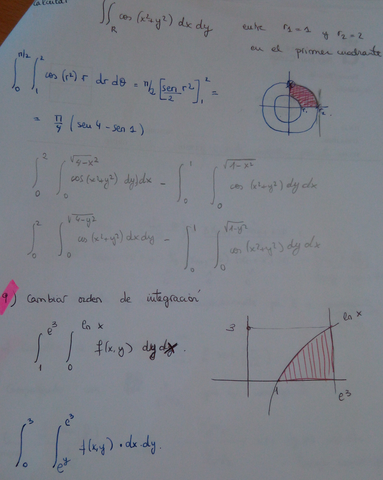 Calcular ∬_R cos(x²+y²) dx dy entre r₁=1 y r₂=2
en el primer cuadrante
∫₀^{π/2} ∫₁² cos(r²) r dr dθ = π/2 [sen r²/2]₁² =
= π/4 (sen 4 - sen 1)
∫₀² ∫₀^{√(4-x²)} cos(x²+y²) dy dx - ∫₀¹ ∫₀^{√(1-x²)} cos(x²+y²) dy dx
∫₀² ∫₀^{√(4-y²)} cos(x²+y²) dx dy - ∫₀¹ ∫₀^{√(1-y²)} cos(x²+y²) dy dx
9) Cambiar orden de integración
∫₁^{e³} ∫₀^{ln x} f(x,y) dy dx.
ln x
3
1
e³
∫₀³ ∫_{e^y}^{e³} f(x,y) · dx dy.